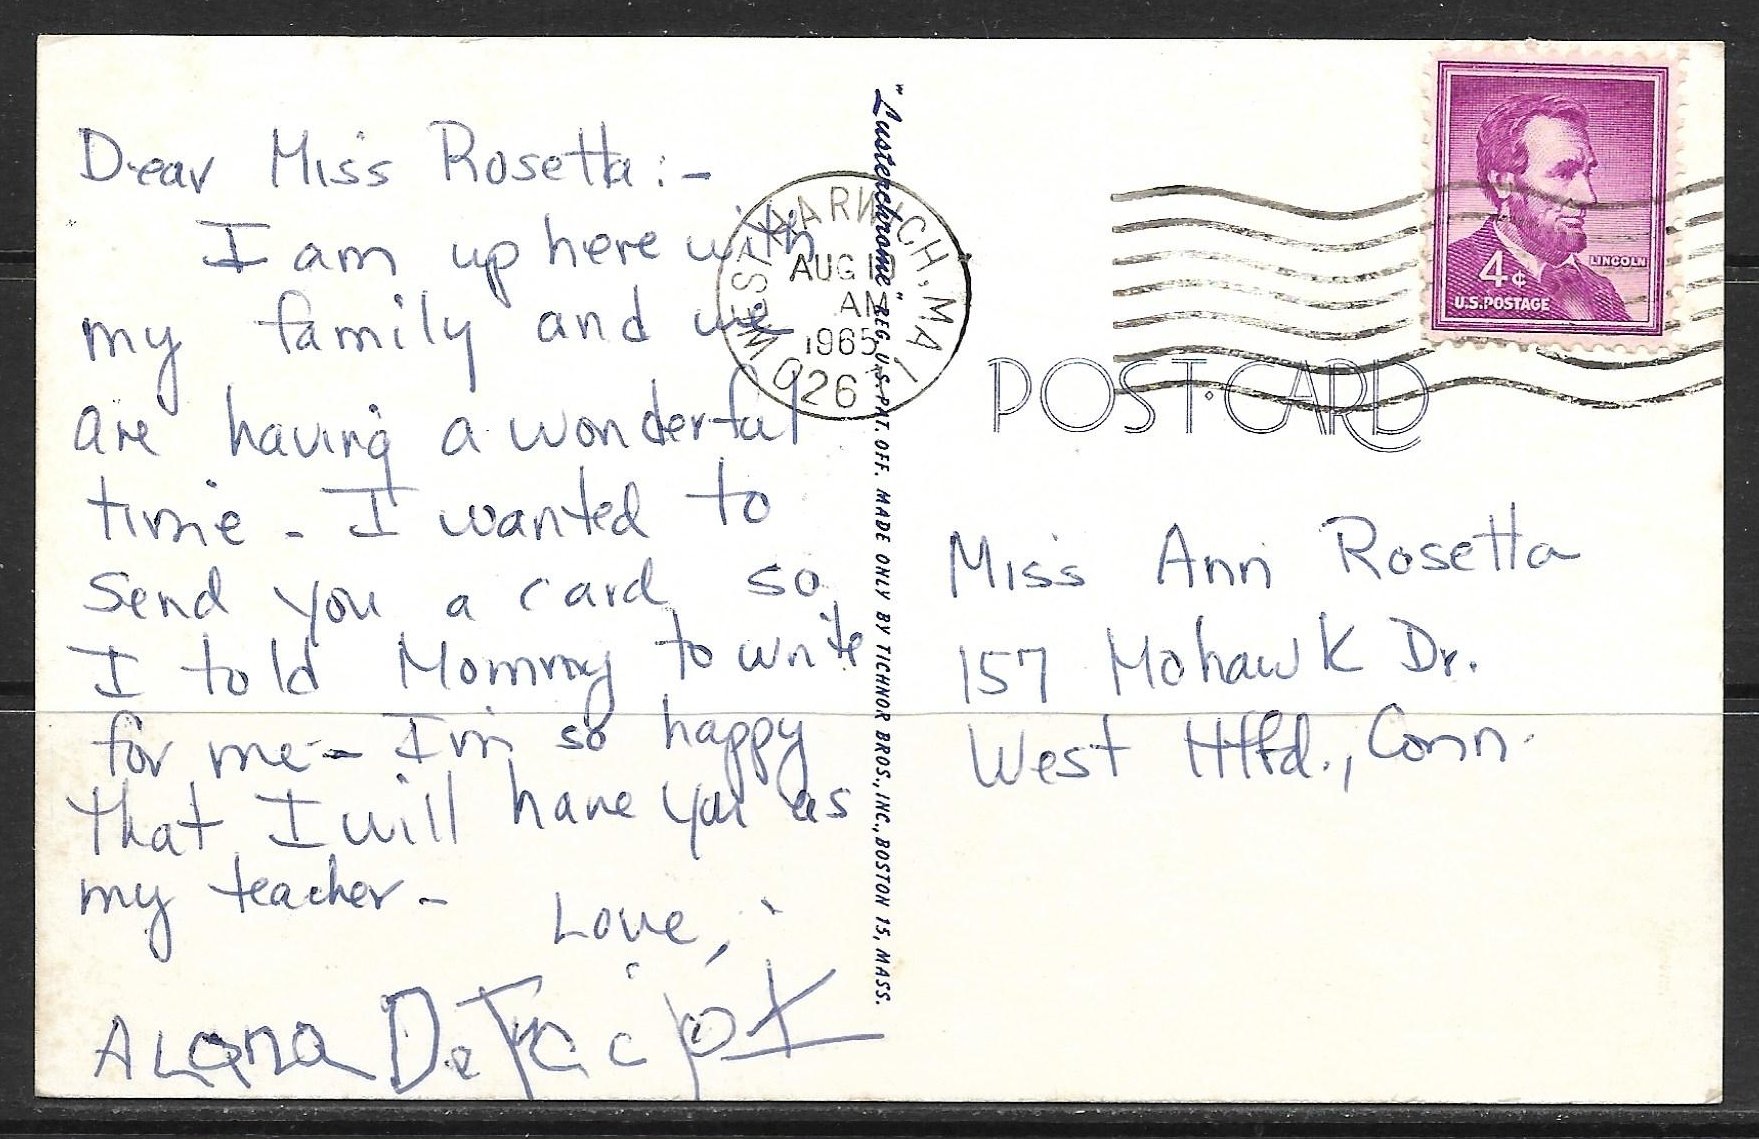 Dear Miss Rosetta:-
I am up here with
my family and we
are having a wonderful
time - I wanted to
send you a card so
I told Mommy to write
for me - I'm so happy
that I will have you as
my teacher -
Love,
ALana
"Lusterchrome" REG. U.S. PAT. OFF. MADE ONLY BY TICHNOR BROS., INC., BOSTON 15, MASS.
WEST HARWICH, MA
AUG
AM
1965
026
LINCOLN
4¢
U.S. POSTAGE
POST CARD
Miss Ann Rosetta
157 Mohawk Dr.
West Htfd., Conn.